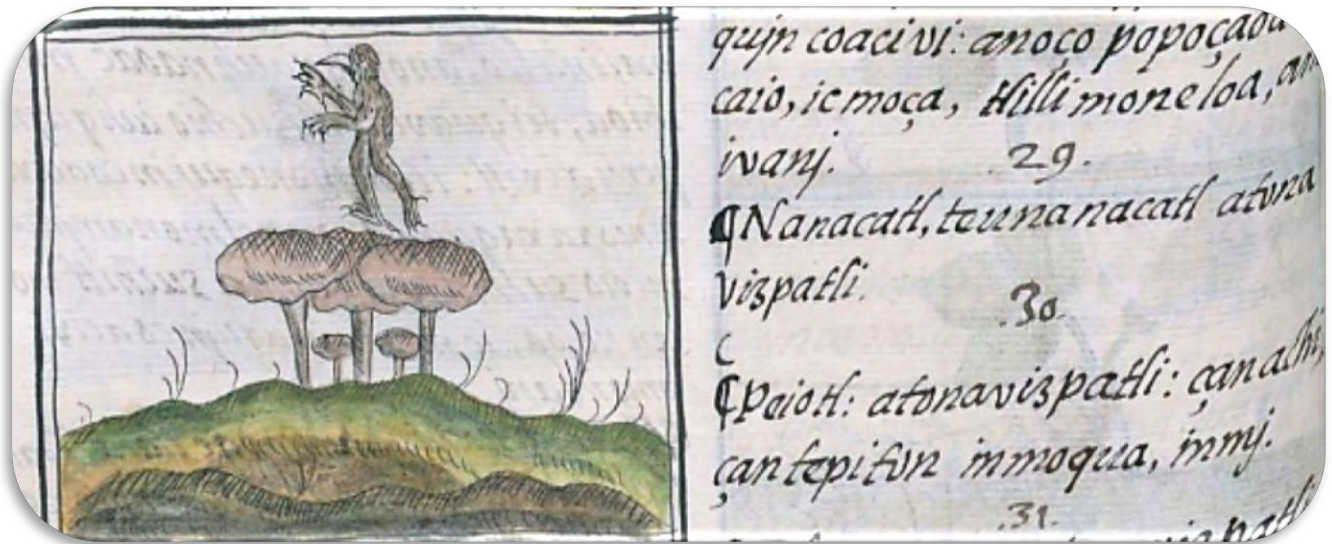 qujn coaci vi: anoço popoçaoa
caio, ic moça, tlilli moneloa, an
ivanj.
29.
¶Nanacatl, teunanacatl atona
vizpatli.
.30.
¶Peiotl: atonavizpatli: çan achi,
çantepiton inmoqua, inmj.
.31.